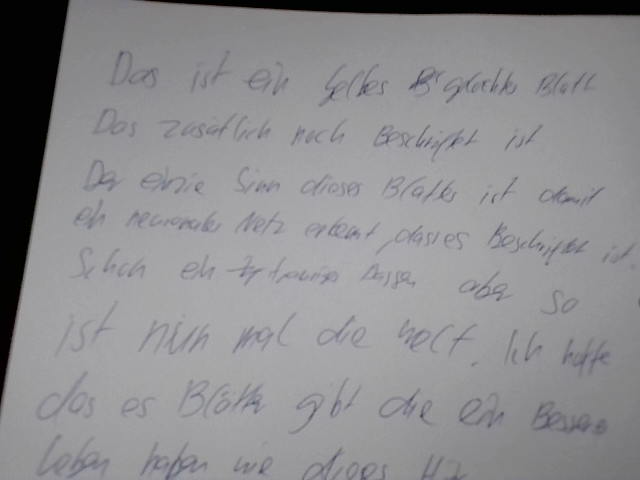 Das ist ein gelbes Blatt
Das zusätlich noch Beschriftet ist
Der einzie Sinn dieses Blattes ist damit
ein neuronales Netz erkennt, das es Beschriftet ist.
Schon ein trauriges Dassen aber so
ist nun mal die welt. Ich hoffe
das es Blätter gibt die ein Besseres
leben haben wie dieses